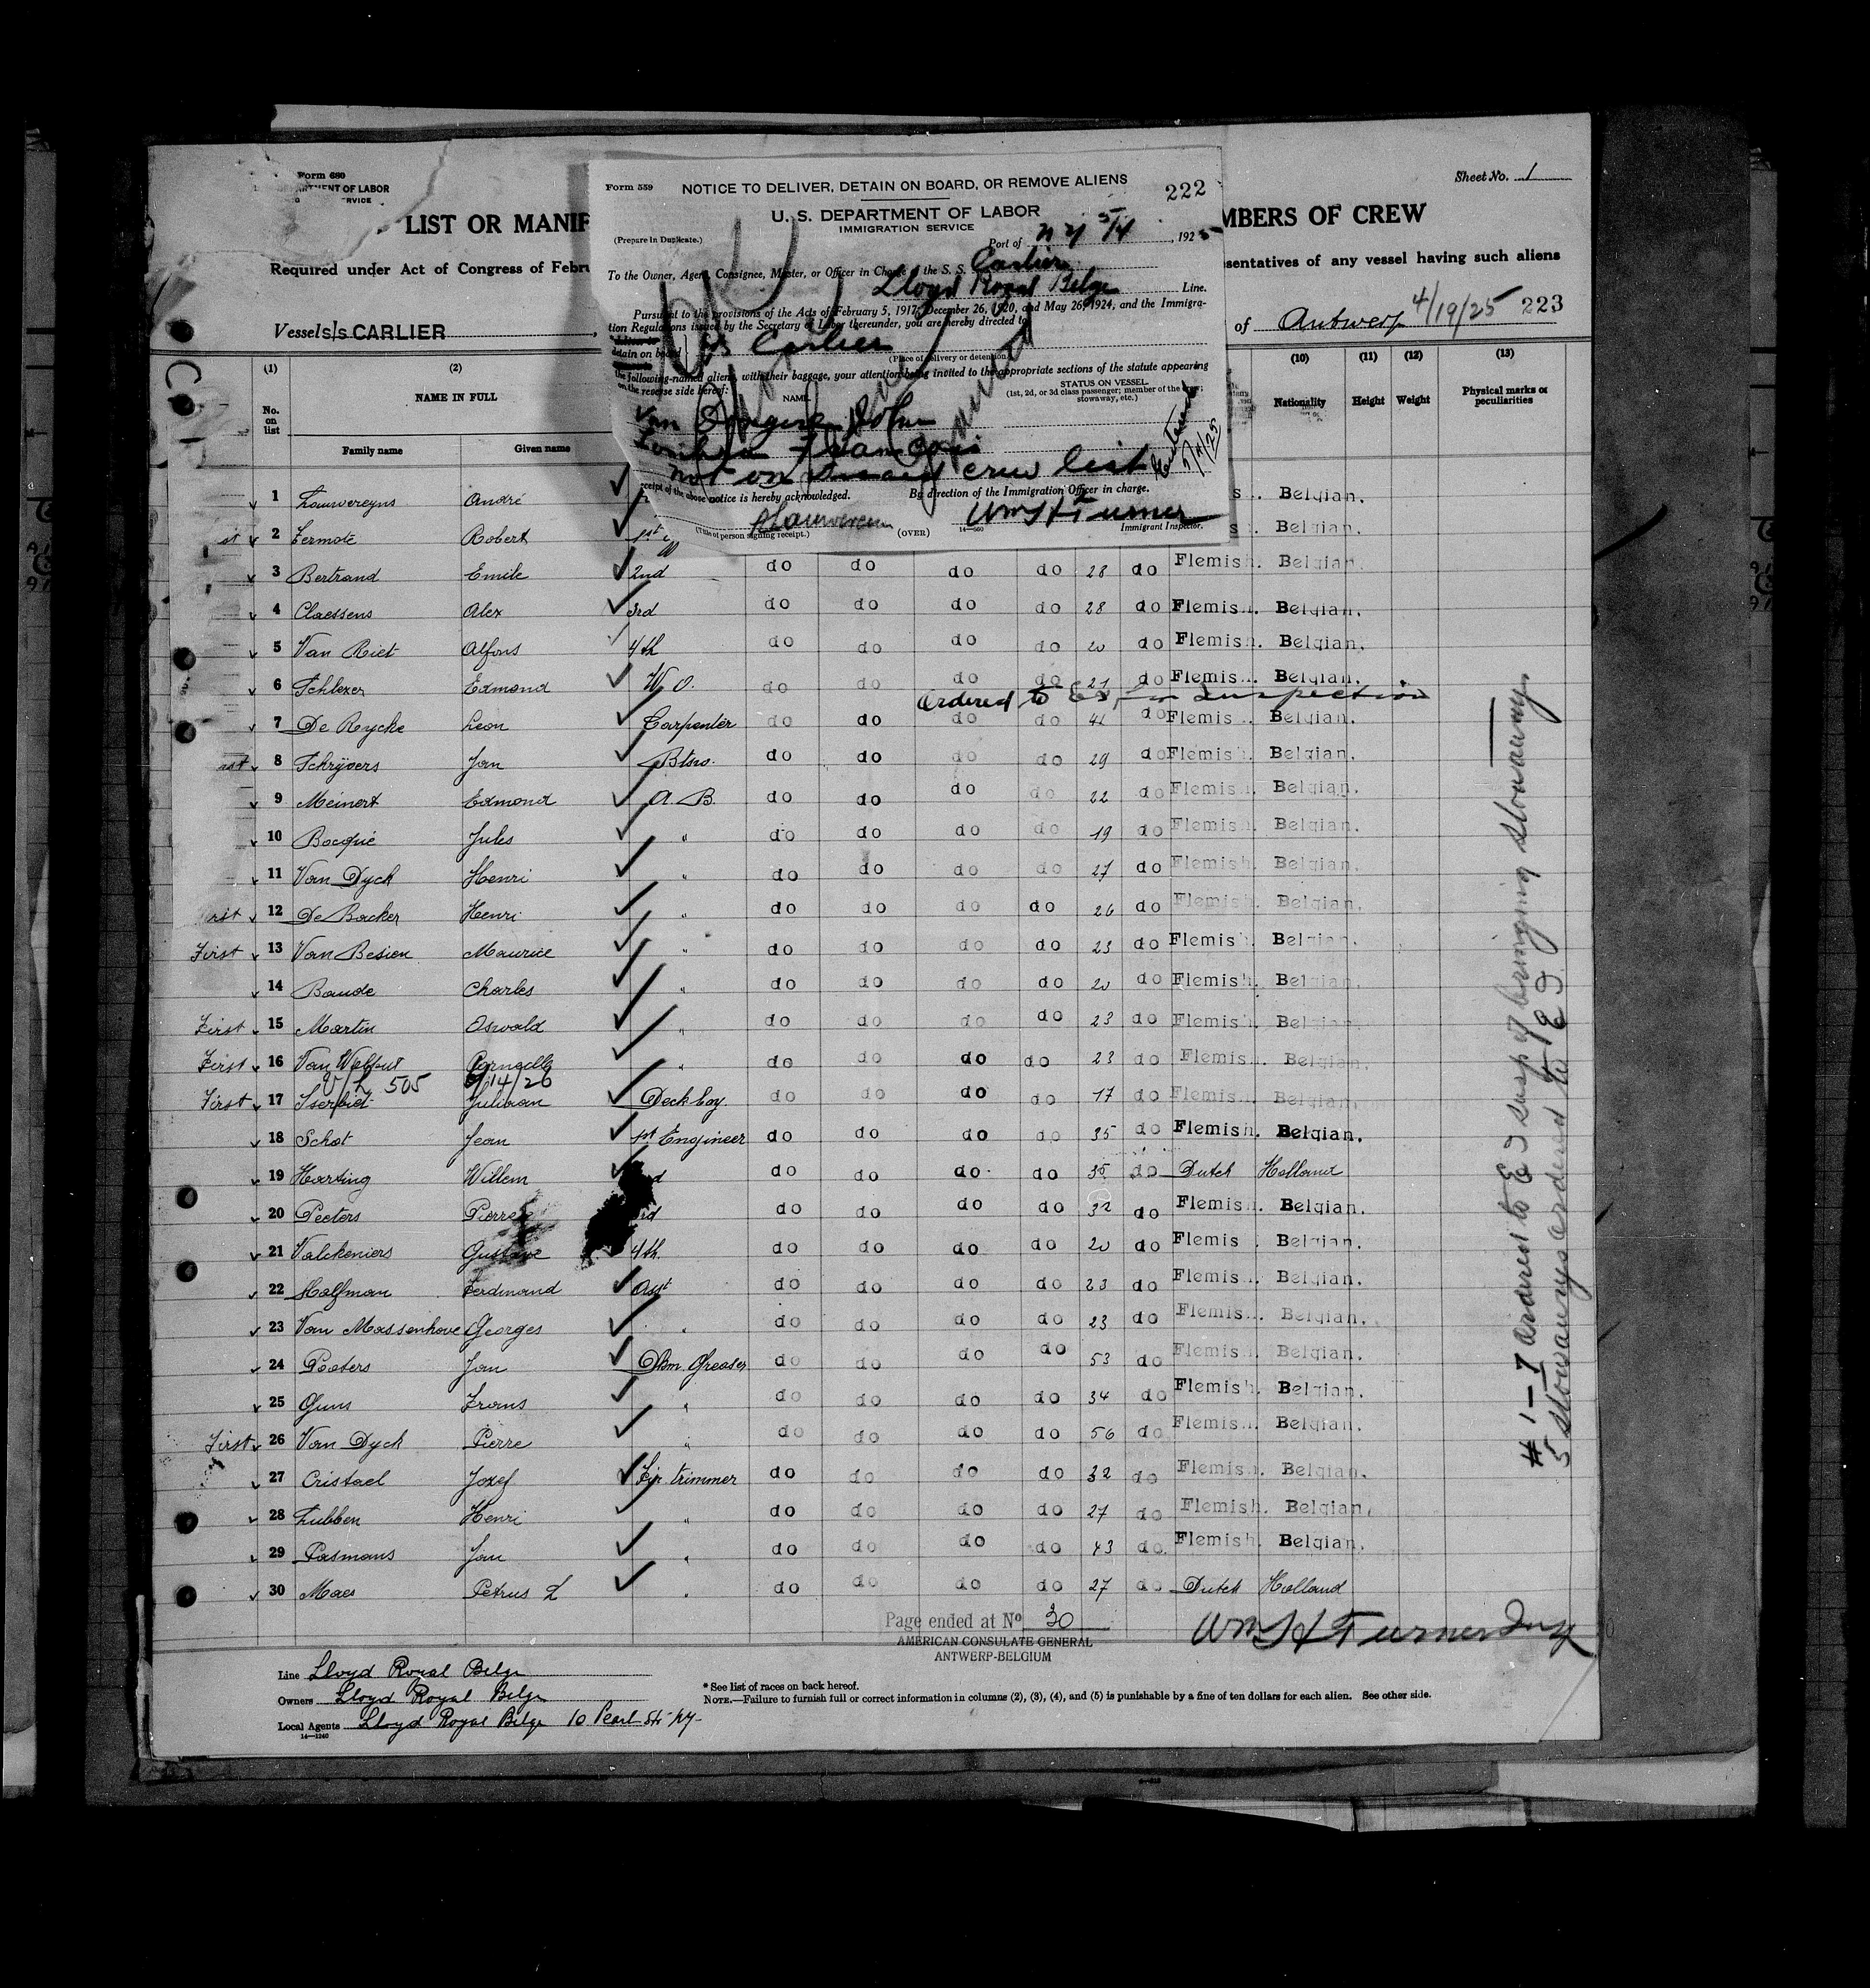 Form 680
DEPARTMENT OF LABOR
Sheet No. 1
LIST OR MANIF
MBERS OF CREW
Required under Act of Congress of Febru
sentatives of any vessel having such aliens
Vessel s/s CARLIER
of Antwerp 4/19/25 223
Form 559 NOTICE TO DELIVER, DETAIN ON BOARD, OR REMOVE ALIENS 222
U. S. DEPARTMENT OF LABOR
IMMIGRATION SERVICE
(Prepare in Duplicate.) Port of N Y 5/4, 1925
To the Owner, Agent, Consignee, Master, or Officer in Charge of the S. S. Carlier
Lloyd Royal Belge Line.
Pursuant to the provisions of the Acts of February 5, 1917, December 26, 1920, and May 26, 1924, and the Immigra-
tion Regulations issued by the Secretary of Labor thereunder, you are hereby directed to
detain on board SS Carlier
(Place of delivery or detention.)
the following-named aliens, with their baggage, your attention being invited to the appropriate sections of the statute appearing
on the reverse side hereof:
NAME. STATUS ON VESSEL.
(1st, 2d, or 3d class passenger; member of the crew; stowaway, etc.)
Van John
Francois
not on crew list
receipt of the above notice is hereby acknowledged. By direction of the Immigration Officer in charge.
Wm H Turner
(Title of person signing receipt.) (OVER) 14—560 Immigrant Inspector.
(1) (2) (10) (11) (12) (13)
No. on list NAME IN FULL Nationality Height Weight Physical marks or peculiarities
Family name Given name
1 Lauwereyns André Belgian.
2 Fermote Robert 1st Belgian.
3 Bertrand Emile 2nd do do do do 28 do Flemish. Belgian.
4 Claessens Alex 3rd do do do do 28 do Flemish. Belgian.
5 Van Riet Alfons 4th do do do do 20 do Flemish. Belgian.
6 Schlexer Edmond W. O. do do do do 21 do Flemish. Belgian.
Ordered to E I for Inspection
7 De Rycke Leon Carpenter do do do do 41 do Flemish. Belgian.
8 Schrijvers Jan Btsw. do do do do 29 do Flemish. Belgian.
9 Meinert Edmond A. B. do do do do 22 do Flemish. Belgian.
10 Bocqué Jules " do do do do 19 do Flemish. Belgian.
11 Van Dyck Henri " do do do do 27 do Flemish. Belgian.
12 De Backer Henri " do do do do 26 do Flemish. Belgian.
First 13 Van Besien Maurice " do do do do 23 do Flemish. Belgian.
14 Baude Charles " do do do do 20 do Flemish. Belgian.
First 15 Martin Oswald " do do do do 23 do Flemish. Belgian.
First 16 Van Walput Corneille " do do do do 23 do Flemish. Belgian.
V/L 505 9/14/26
First 17 Iserbiet Juliaan Deck boy do do do do 17 do Flemish. Belgian.
18 Schot Jean 1st Engineer do do do do 35 do Flemish. Belgian.
19 Harting Willem do do do do 35 do Dutch Holland
20 Peeters Pierre do do do do 32 do Flemish. Belgian.
21 Valckeniers Gustave 4th. do do do do 20 do Flemish. Belgian.
22 Halfman Ferdinand Asst do do do do 23 do Flemish. Belgian.
23 Van Massenhove Georges " do do do do 23 do Flemish. Belgian.
24 Peeters Jan Dkm. Greaser do do do do 53 do Flemish. Belgian.
25 Guns Frans " do do do do 34 do Flemish. Belgian.
First 26 Van Dyck Pierre " do do do do 56 do Flemish. Belgian.
27 Cristael Jozef Fir. trimmer do do do do 32 do Flemish. Belgian.
28 Lubben Henri " do do do do 27 do Flemish. Belgian.
29 Pasmans Jan " do do do do 43 do Flemish. Belgian.
30 Maes Petrus L " do do do do 27 do Dutch Holland
#1–7 ordered to E I susp of bringing stowaways.
5 stowaways ordered to E I
Page ended at No 30
AMERICAN CONSULATE GENERAL
ANTWERP-BELGIUM
Wm H Turner Insp
Line Lloyd Royal Belge
Owners Lloyd Royal Belge
Local Agents Lloyd Royal Belge 10 Pearl St. NY.
14—1240
* See list of races on back hereof.
NOTE.—Failure to furnish full or correct information in columns (2), (3), (4), and (5) is punishable by a fine of ten dollars for each alien. See other side.